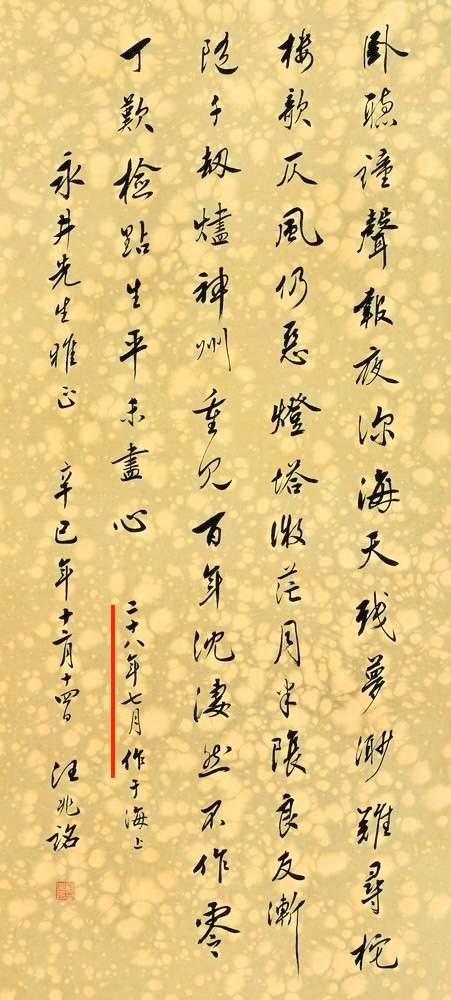 卧聽鐘聲報夜深海天殘夢渺難尋柁
樓欹仄風仍惡燈塔微茫月半陰良友漸
隨千劫燼神州重見百年沈淒然不作零
丁歎檢點生平未盡心 二十八年七月作于海上
永井先生雅正 辛巳年十二月十四日 汪兆銘